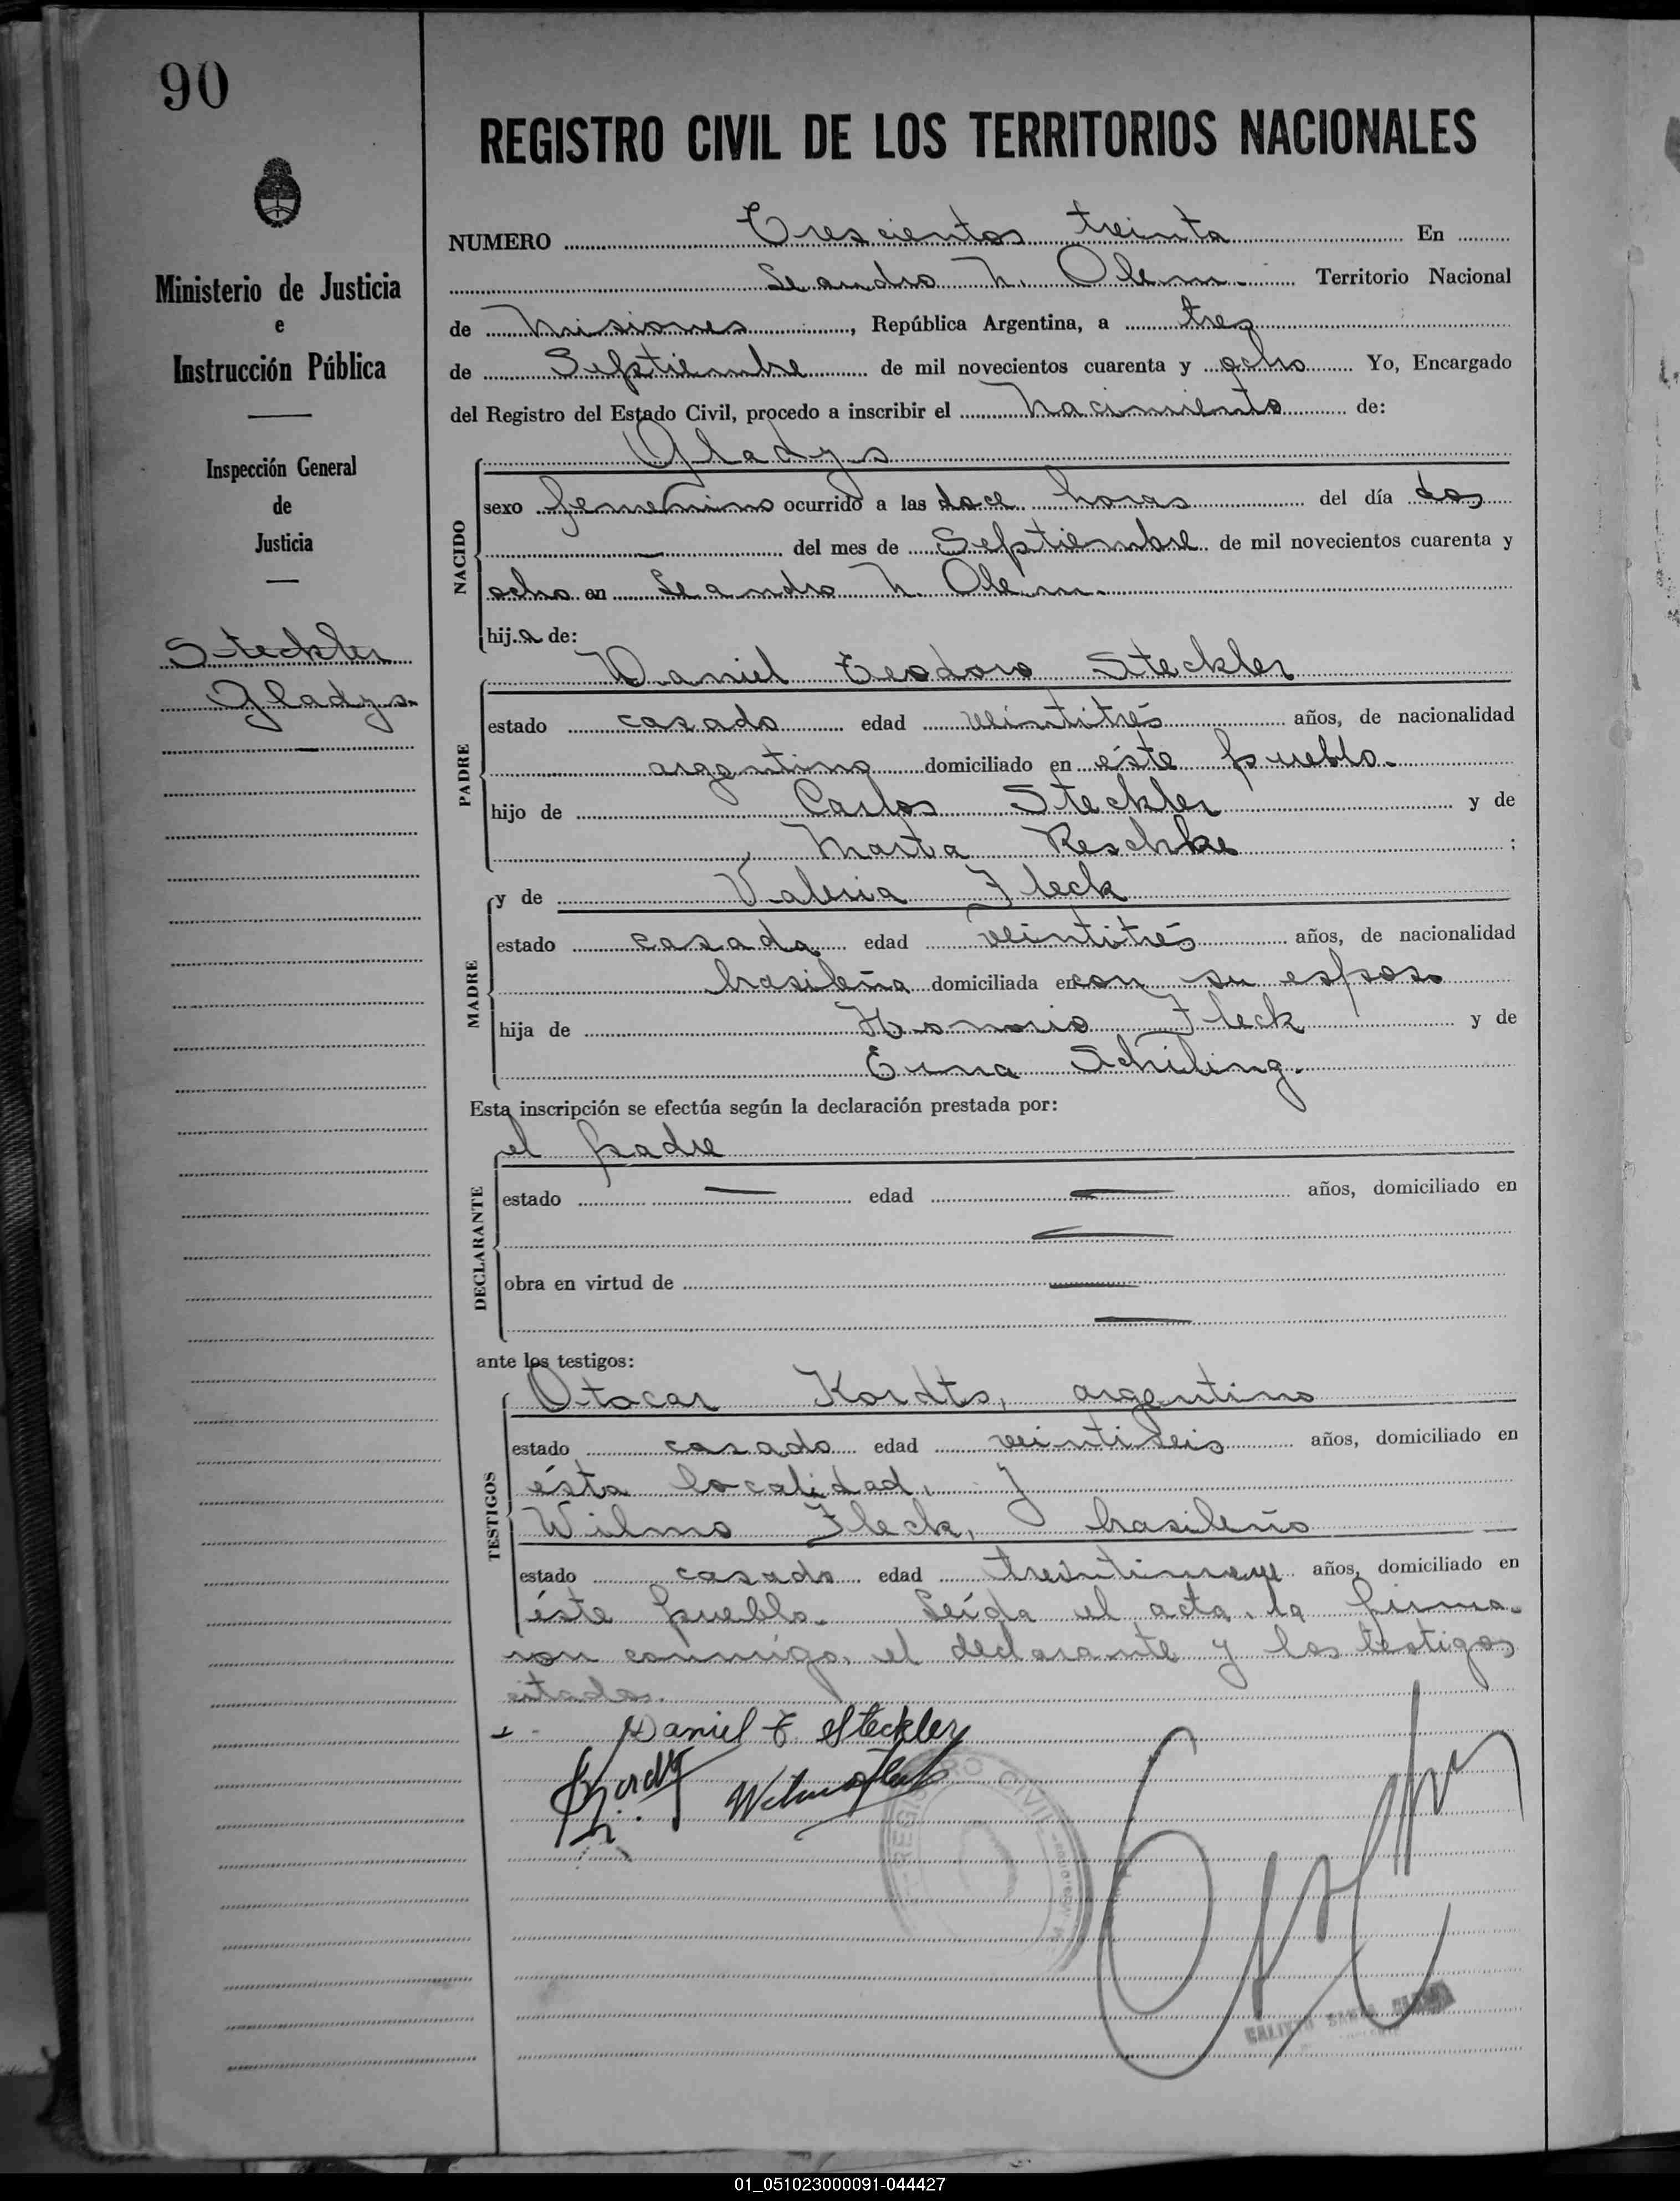 90
REGISTRO CIVIL DE LOS TERRITORIOS NACIONALES
Ministerio de Justicia
e
Instrucción Pública
Inspección General
de
Justicia
Steckler
Gladys.
NUMERO Trescientos treinta En
Leandro N. Alem. Territorio Nacional
de Misiones, República Argentina, a tres
de Septiembre de mil novecientos cuarenta y ocho Yo, Encargado
del Registro del Estado Civil, procedo a inscribir el Nacimiento de:
NACIDO
Gladys
sexo femenino ocurrido a las doce horas del día dos
— del mes de Septiembre de mil novecientos cuarenta y
ocho en Leandro N. Alem.
hija de:
PADRE
Daniel Teodoro Steckler
estado casado edad veintitrés años, de nacionalidad
argentino domiciliado en éste pueblo.
hijo de Carlos Steckler y de
Marta Reschke ;
MADRE
y de Valeria Fleck
estado casada edad veintitrés años, de nacionalidad
brasileña domiciliada en con su esposo
hija de Honorio Fleck y de
Erna Schiling.
Esta inscripción se efectúa según la declaración prestada por:
DECLARANTE
el padre
estado — edad — años, domiciliado en
—
obra en virtud de —
—
ante los testigos:
TESTIGOS
Otocar Kordts, argentino
estado casado edad veintiseis años, domiciliado en
ésta localidad, y
Wilmo Fleck, brasileño
estado casado edad años, domiciliado en
éste pueblo. Leída el acta, la firma-
ron conmigo, el declarante y los testigos
citados.
Daniel T Steckler
Kordts Wilmo Fleck
REGISTRO CIVIL
01_051023000091-044427